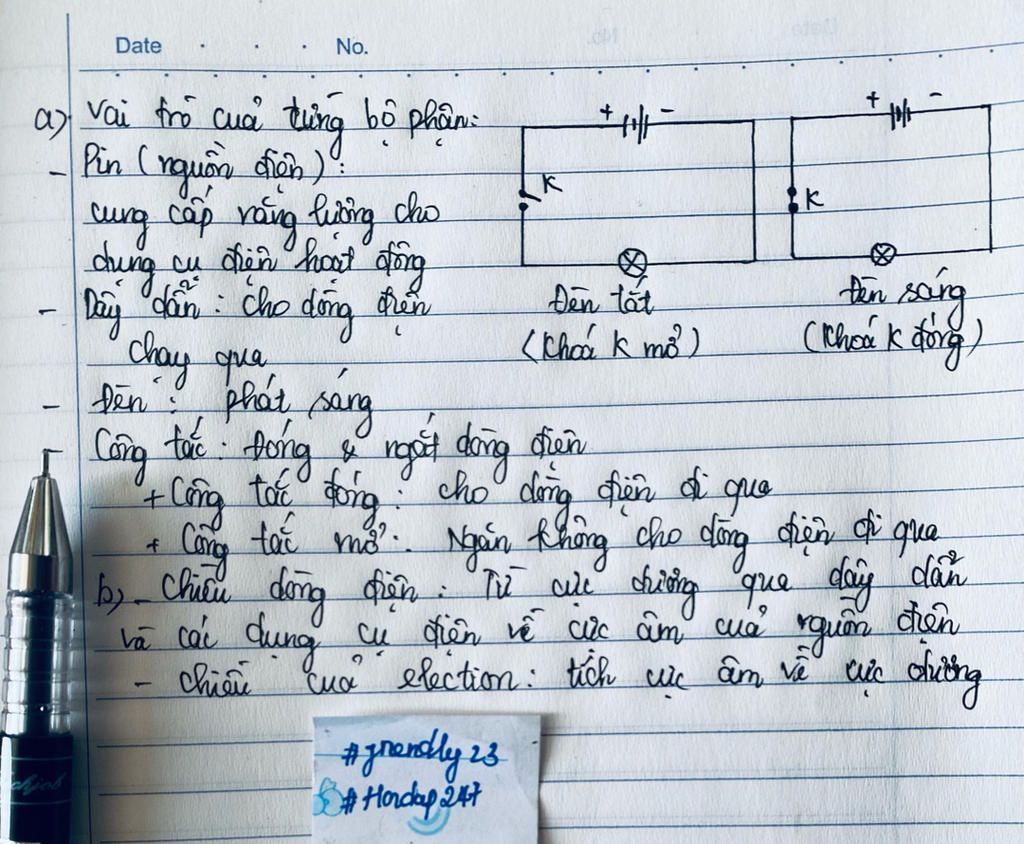 Date . . . No.
a) Vai trò của từng bộ phận:
- Pin (nguồn điện):
cung cấp năng lượng cho
dụng cụ điện hoạt động
- Dây dẫn: cho dòng điện
chạy qua
- Đèn: phát sáng
- Công tắc: Đóng & ngắt dòng điện
+ Công tắc đóng: cho dòng điện đi qua
+ Công tắc mở: Ngăn không cho dòng điện đi qua
b) - Chiều dòng điện: Từ cực dương qua dây dẫn
và các dụng cụ điện về cực âm của nguồn điện
- chiều của election: tích cực âm về cực dương
+ -
K
Đèn tắt
(Khoá K mở)
+ -
K
Đèn sáng
(Khoá K đóng)
#friendly23
#Hoidap247